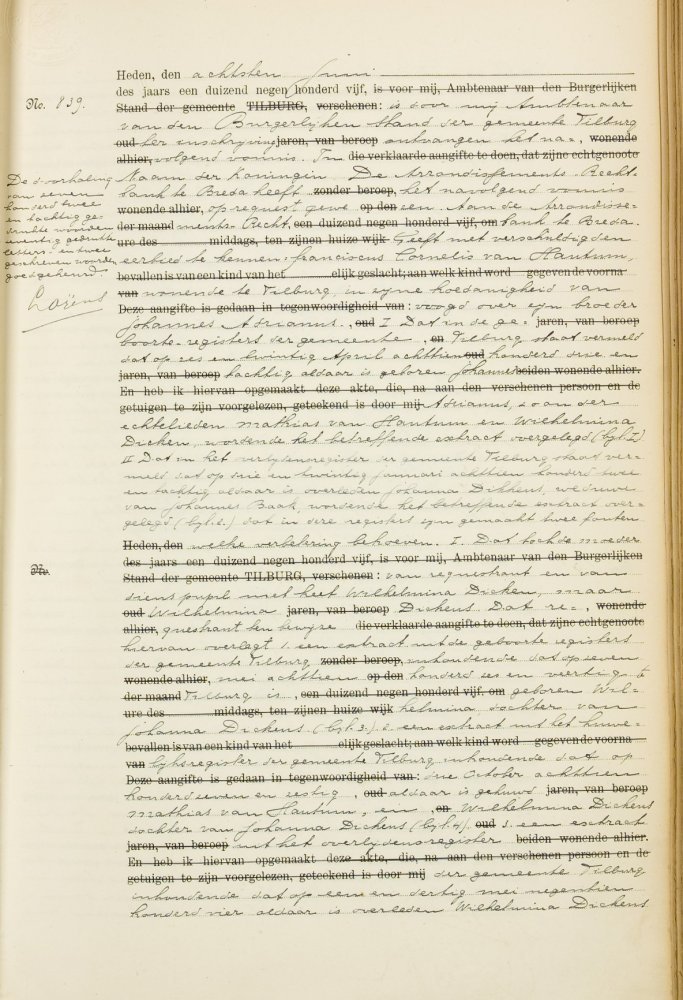 Heden, den achtsten Juni
No. 839.
des jaars een duizend negen honderd vijf, is voor mij, Ambtenaar van den Burgerlijken
Stand der gemeente TILBURG, verschenen: is door mij Ambtenaar
van den Burgerlijken Stand der gemeente Tilburg
oud ter inschrijving jaren, van beroep ontvangen het na-, wonende
alhier, volgend vonnis. In die verklaarde aangifte te doen, dat zijne echtgenoote
Naam der Koningin De Arrondissements-Recht-
bank te Breda heeft zonder beroep, het navolgend vonnis
wonende alhier, op request gewe op den een Aan de Arrondisse-
der maand ments-Recht, een duizend negen honderd vijf, om bank te Breda.
ure des middags, ten zijnen huize wijk Geeft met verschuldigden
eerbied te kennen: Franciscus Cornelis van Hautum,
bevallen is van een kind van het elijk geslacht; aan welk kind word gegeven de voorna
van wonende te Tilburg, in zijne hoedanigheid van
Deze aangifte is gedaan in tegenwoordigheid van: voogd over zijn broeder
Johannes Adrianus, oud I Dat in de ge- jaren, van beroep
boorte-registers der gemeente, en Tilburg staat vermeld
dat op zes en twintig April achttien oud honderd drie en
jaren, van beroep tachtig aldaar is geboren Johannes beiden wonende alhier.
En heb ik hiervan opgemaakt deze akte, die, na aan den verschenen persoon en de
getuigen te zijn voorgelezen, geteekend is door mij Adrianus, zoon der
echtelieden Mathias van Hautum en Wilhelmina
Dicken, wordende het betreffende extract overgelegd (bijl. I)
II Dat in het overlijdensregister der gemeente Tilburg staat ver-
meld dat op drie en twintig Januari achttien honderd twee
en tachtig aldaar is overleden Johanna Dikkens, weduwe
van Johannes Baak, wordende het betreffende extract over-
gelegd (bijl. 2.) dat in deze registers zijn gemaakt twee fouten
De doorhaling
van zeven
honderd twee
en tachtig ge-
drukte woorden
en twee
geschreven woorden
goedgekeurd.
No.
Heden, den welke verbetering behoeven. I. Dat toch de moeder
des jaars een duizend negen honderd vijf, is voor mij, Ambtenaar van den Burgerlijken
Stand der gemeente TILBURG, verschenen: van requestrant en van
diens pupil niet heet Wilhelmina Dicken, maar
oud Wilhelmina jaren, van beroep Dickens Dat re-, wonende
alhier, questrant ten bewijze die verklaarde aangifte te doen, dat zijne echtgenoote
hiervan overlegt 1. een extract uit de geboorte registers
der gemeente Tilburg zonder beroep, inhoudende dat op zeven
wonende alhier, mei achttien op den honderd zes en veertig te
der maand Tilburg is, een duizend negen honderd vijf, om geboren Wil-
ure des middags, ten zijnen huize wijk helmina dochter van
Johanna Dickens (bijl. 3.) 2. een extract uit het huwe-
bevallen is van een kind van het elijk geslacht; aan welk kind word gegeven de voorna
van lijksregister der gemeente Tilburg inhoudende dat op
Deze aangifte is gedaan in tegenwoordigheid van: drie October achttien
honderd zeven en zestig, oud aldaar is gehuwd jaren, van beroep
Mathias van Hautum, en, en Wilhelmina Dickens
dochter van Johanna Dickens (bijl. 4). oud 3. een extract
jaren, van beroep uit het overlijdensregister beiden wonende alhier.
En heb ik hiervan opgemaakt deze akte, die, na aan den verschenen persoon en de
getuigen te zijn voorgelezen, geteekend is door mij der gemeente Tilburg
inhoudende dat op een en dertig mei negentien
honderd vier aldaar is overleden Wilhelmina Dickens